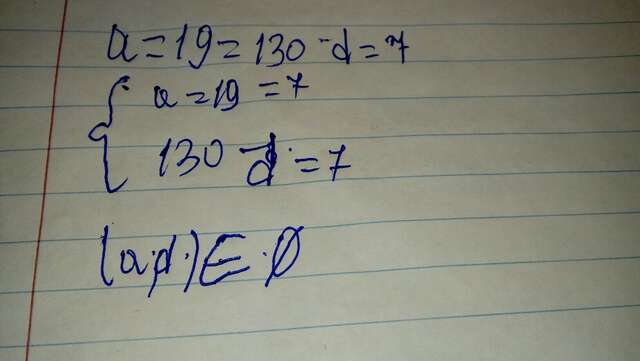 a = 19 = 130 - d = 7
{ a = 19 = 7
130 - d = 7
(a; d) ∈ ∅